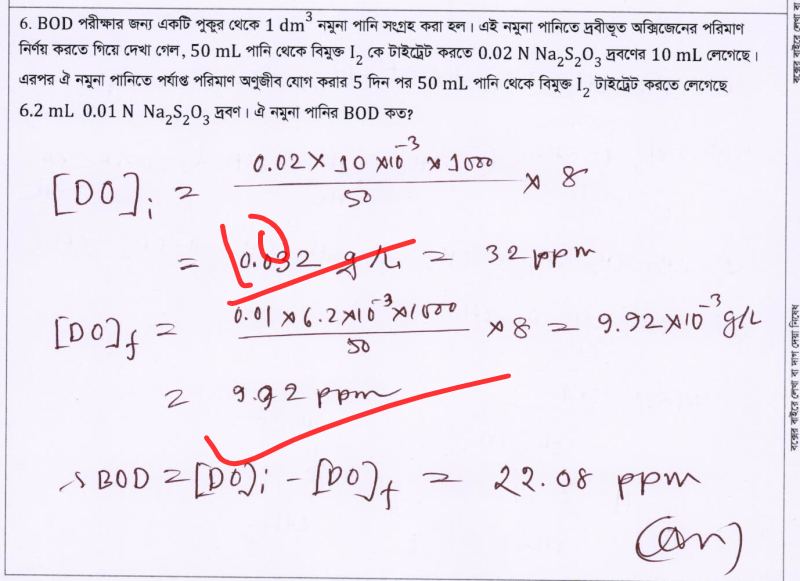 6. BOD পরীক্ষার জন্য একটি পুকুর থেকে 1 dm³ নমুনা পানি সংগ্রহ করা হল। এই নমুনা পানিতে দ্রবীভূত অক্সিজেনের পরিমাণ
নির্ণয় করতে গিয়ে দেখা গেল, 50 mL পানি থেকে বিমুক্ত I₂ কে টাইট্রেট করতে 0.02 N Na₂S₂O₃ দ্রবণের 10 mL লেগেছে।
এরপর ঐ নমুনা পানিতে পর্যাপ্ত পরিমাণ অণুজীব যোগ করার 5 দিন পর 50 mL পানি থেকে বিমুক্ত I₂ টাইট্রেট করতে লেগেছে
6.2 mL 0.01 N Na₂S₂O₃ দ্রবণ। ঐ নমুনা পানির BOD কত?
[DO]ᵢ = (0.02 × 10 × 10⁻³ × 1000)/50 × 8
= 0.032 g/L = 32 ppm
10
[DO]f = (0.01 × 6.2 × 10⁻³ × 1000)/50 × 8 = 9.92 × 10⁻³ g/L
= 9.92 ppm
∴ BOD = [DO]ᵢ - [DO]f = 22.08 ppm
(Ans)
বক্সের বাইরে লেখা বা দাগ দেয়া নিষেধ